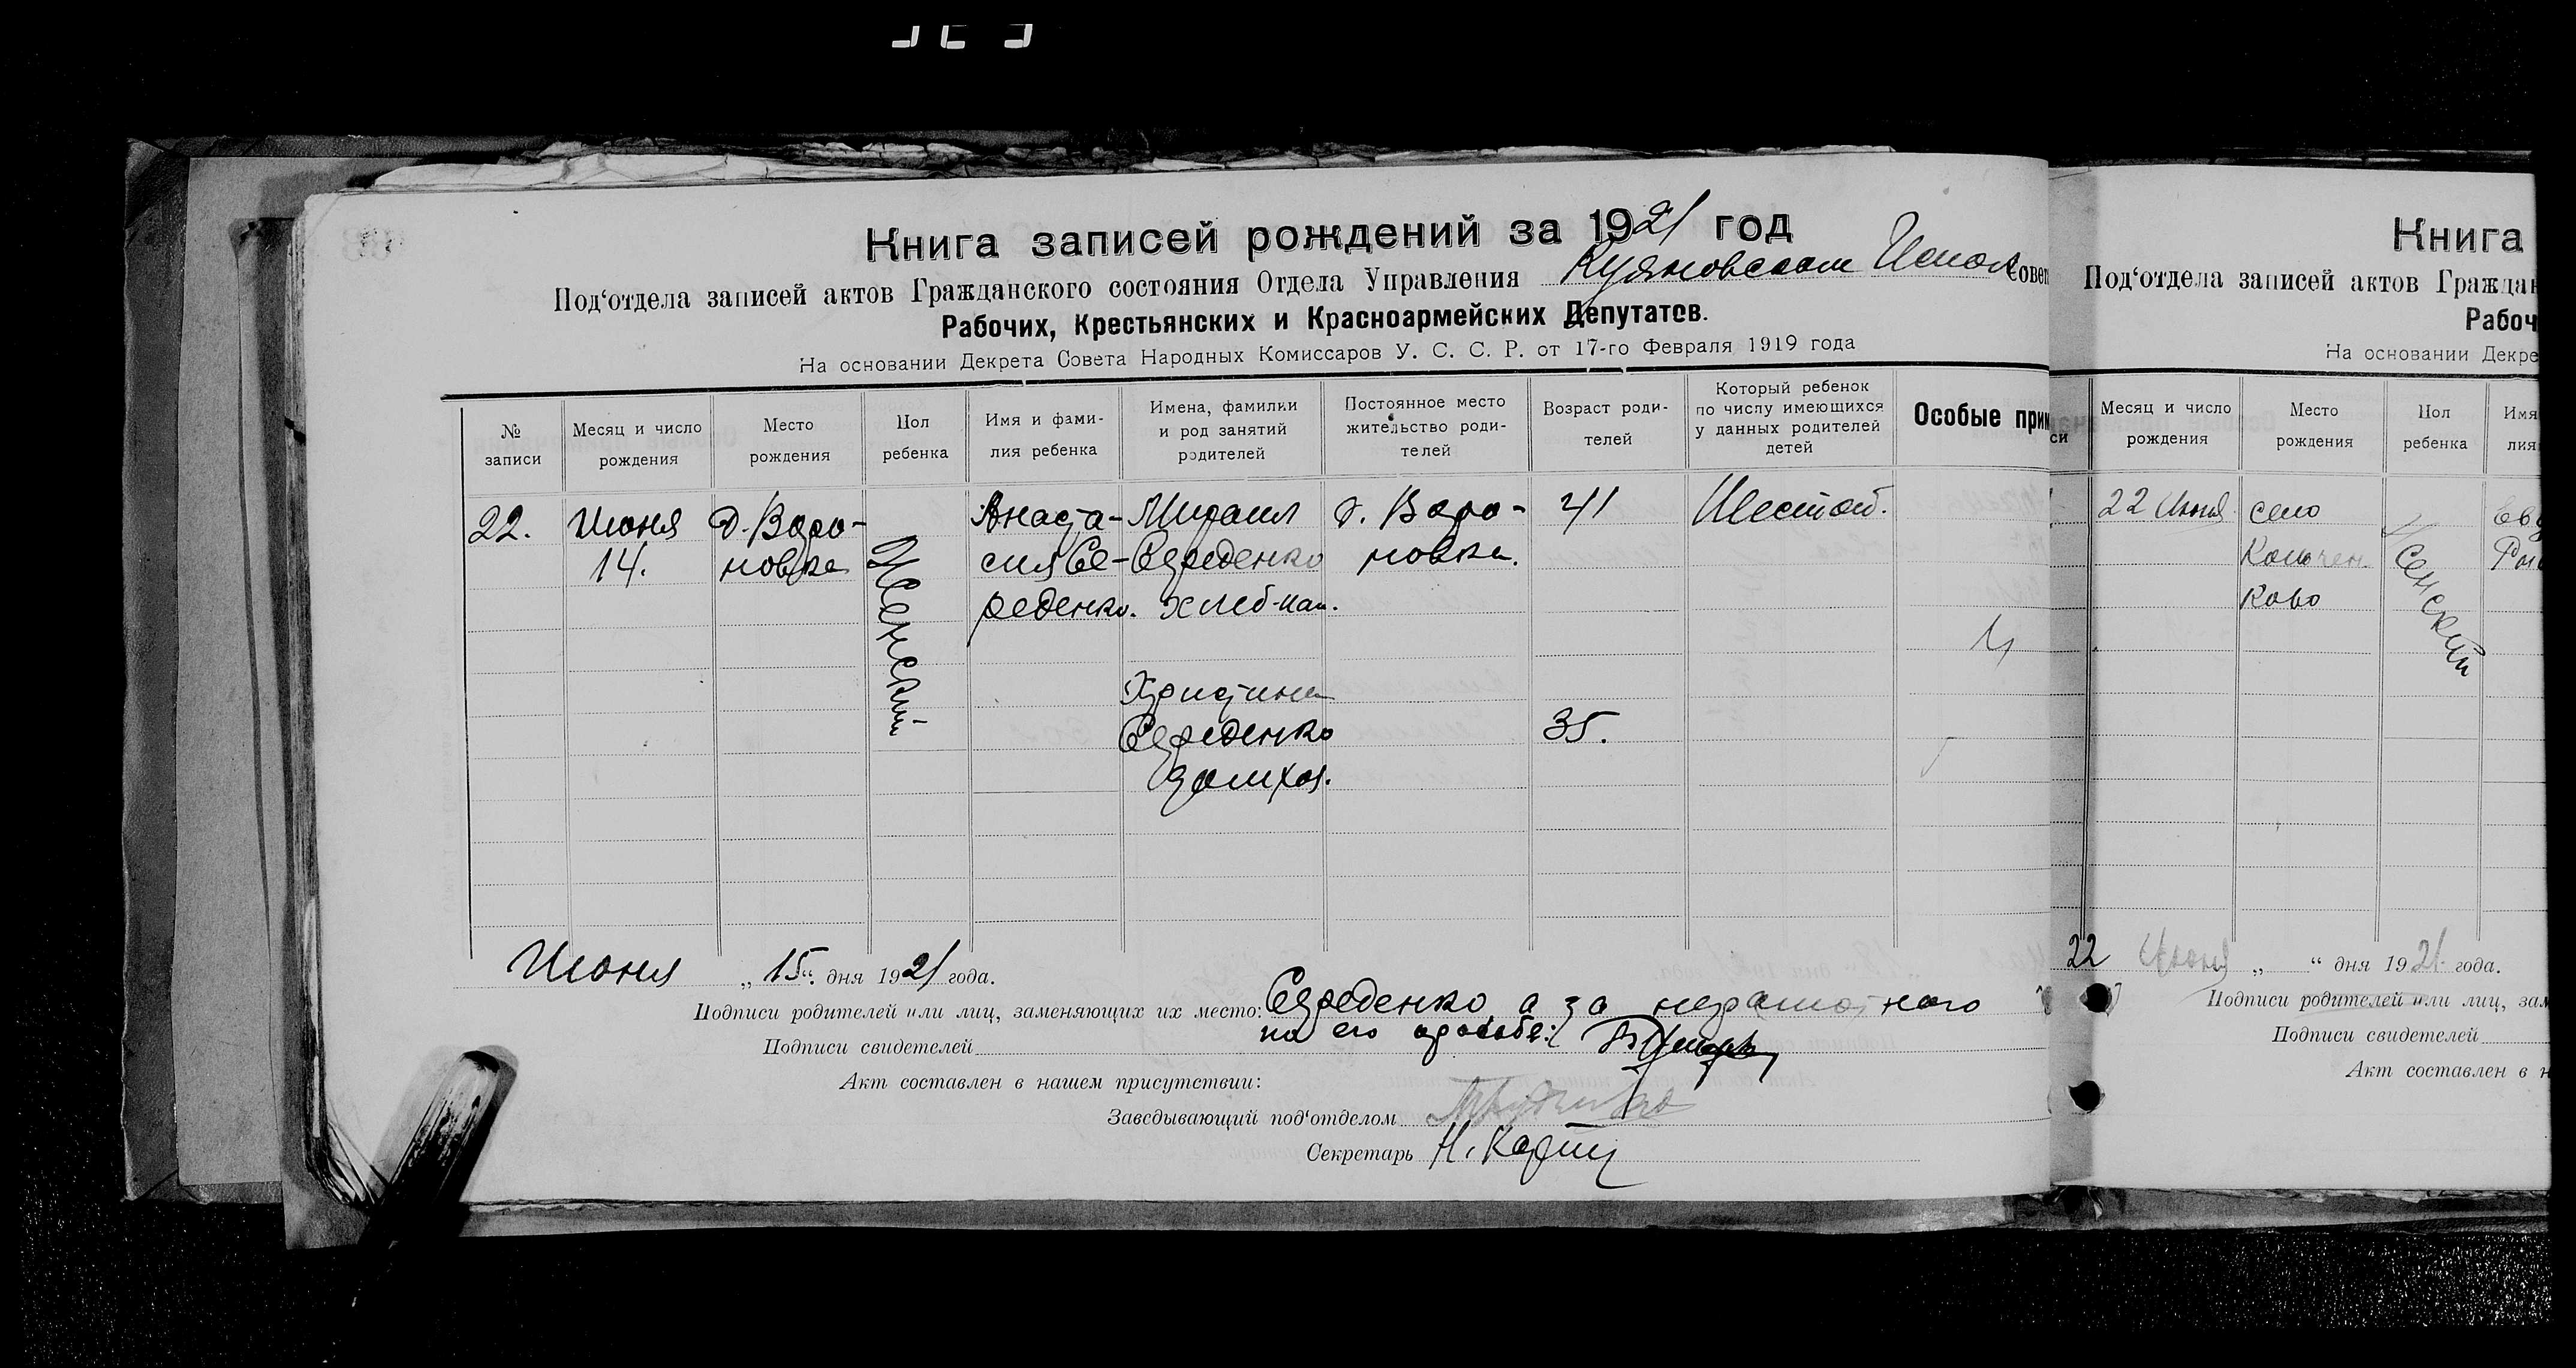 Книга записей рождений за 1921 год
Под‘отдела записей актов Гражданского состояния Отдела Управления Совет
Рабочих, Крестьянских и Красноармейских Депутатов.
На основании Декрета Совета Народных Комиссаров У. С. С. Р. от 17-го Февраля 1919 года
№ записи
Месяц и число рождения
Место рождения
Пол ребенка
Имя и фами-
лия ребенка
Имена, фамилии
и род занятий
родителей
Постоянное место
жительство роди-
телей
Возраст роди-
телей
Который ребенок
по числу имеющихся
у данных родителей
детей
Особые прим
22.
Июня
14.
д. Воро-
новка
Женский
Анаста-
сия Се-
реденко.
Михаил
Середенко
хлеб-паш.
Христина
Середенко
домхоз.
д. Воро-
новка.
41
35.
Шестой.
Июня „15“ дня 1921 года.
Подписи родителей или лиц, заменяющих их место: Середенко, а за неграмотного
по его просьбе:
Подписи свидетелей
Акт составлен в нашем присутствии:
Заведывающий под‘отделом
Секретарь Н.
Книга
Под‘отдела записей актов Граждан
Рабоч
На основании Декре
си
Месяц и число
рождения
Место
рождения
Пол
ребенка
Имя
лия
22 Июня
село
Женский
22 Июня „ “ дня 1921 года.
Подписи родителей или лиц, зам
Подписи свидетелей
Акт составлен в н